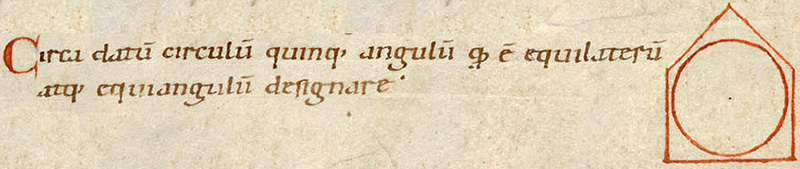 Circa datū circulū quinq; angulū qđ ē equilaterū
atq; equiangulū designare·